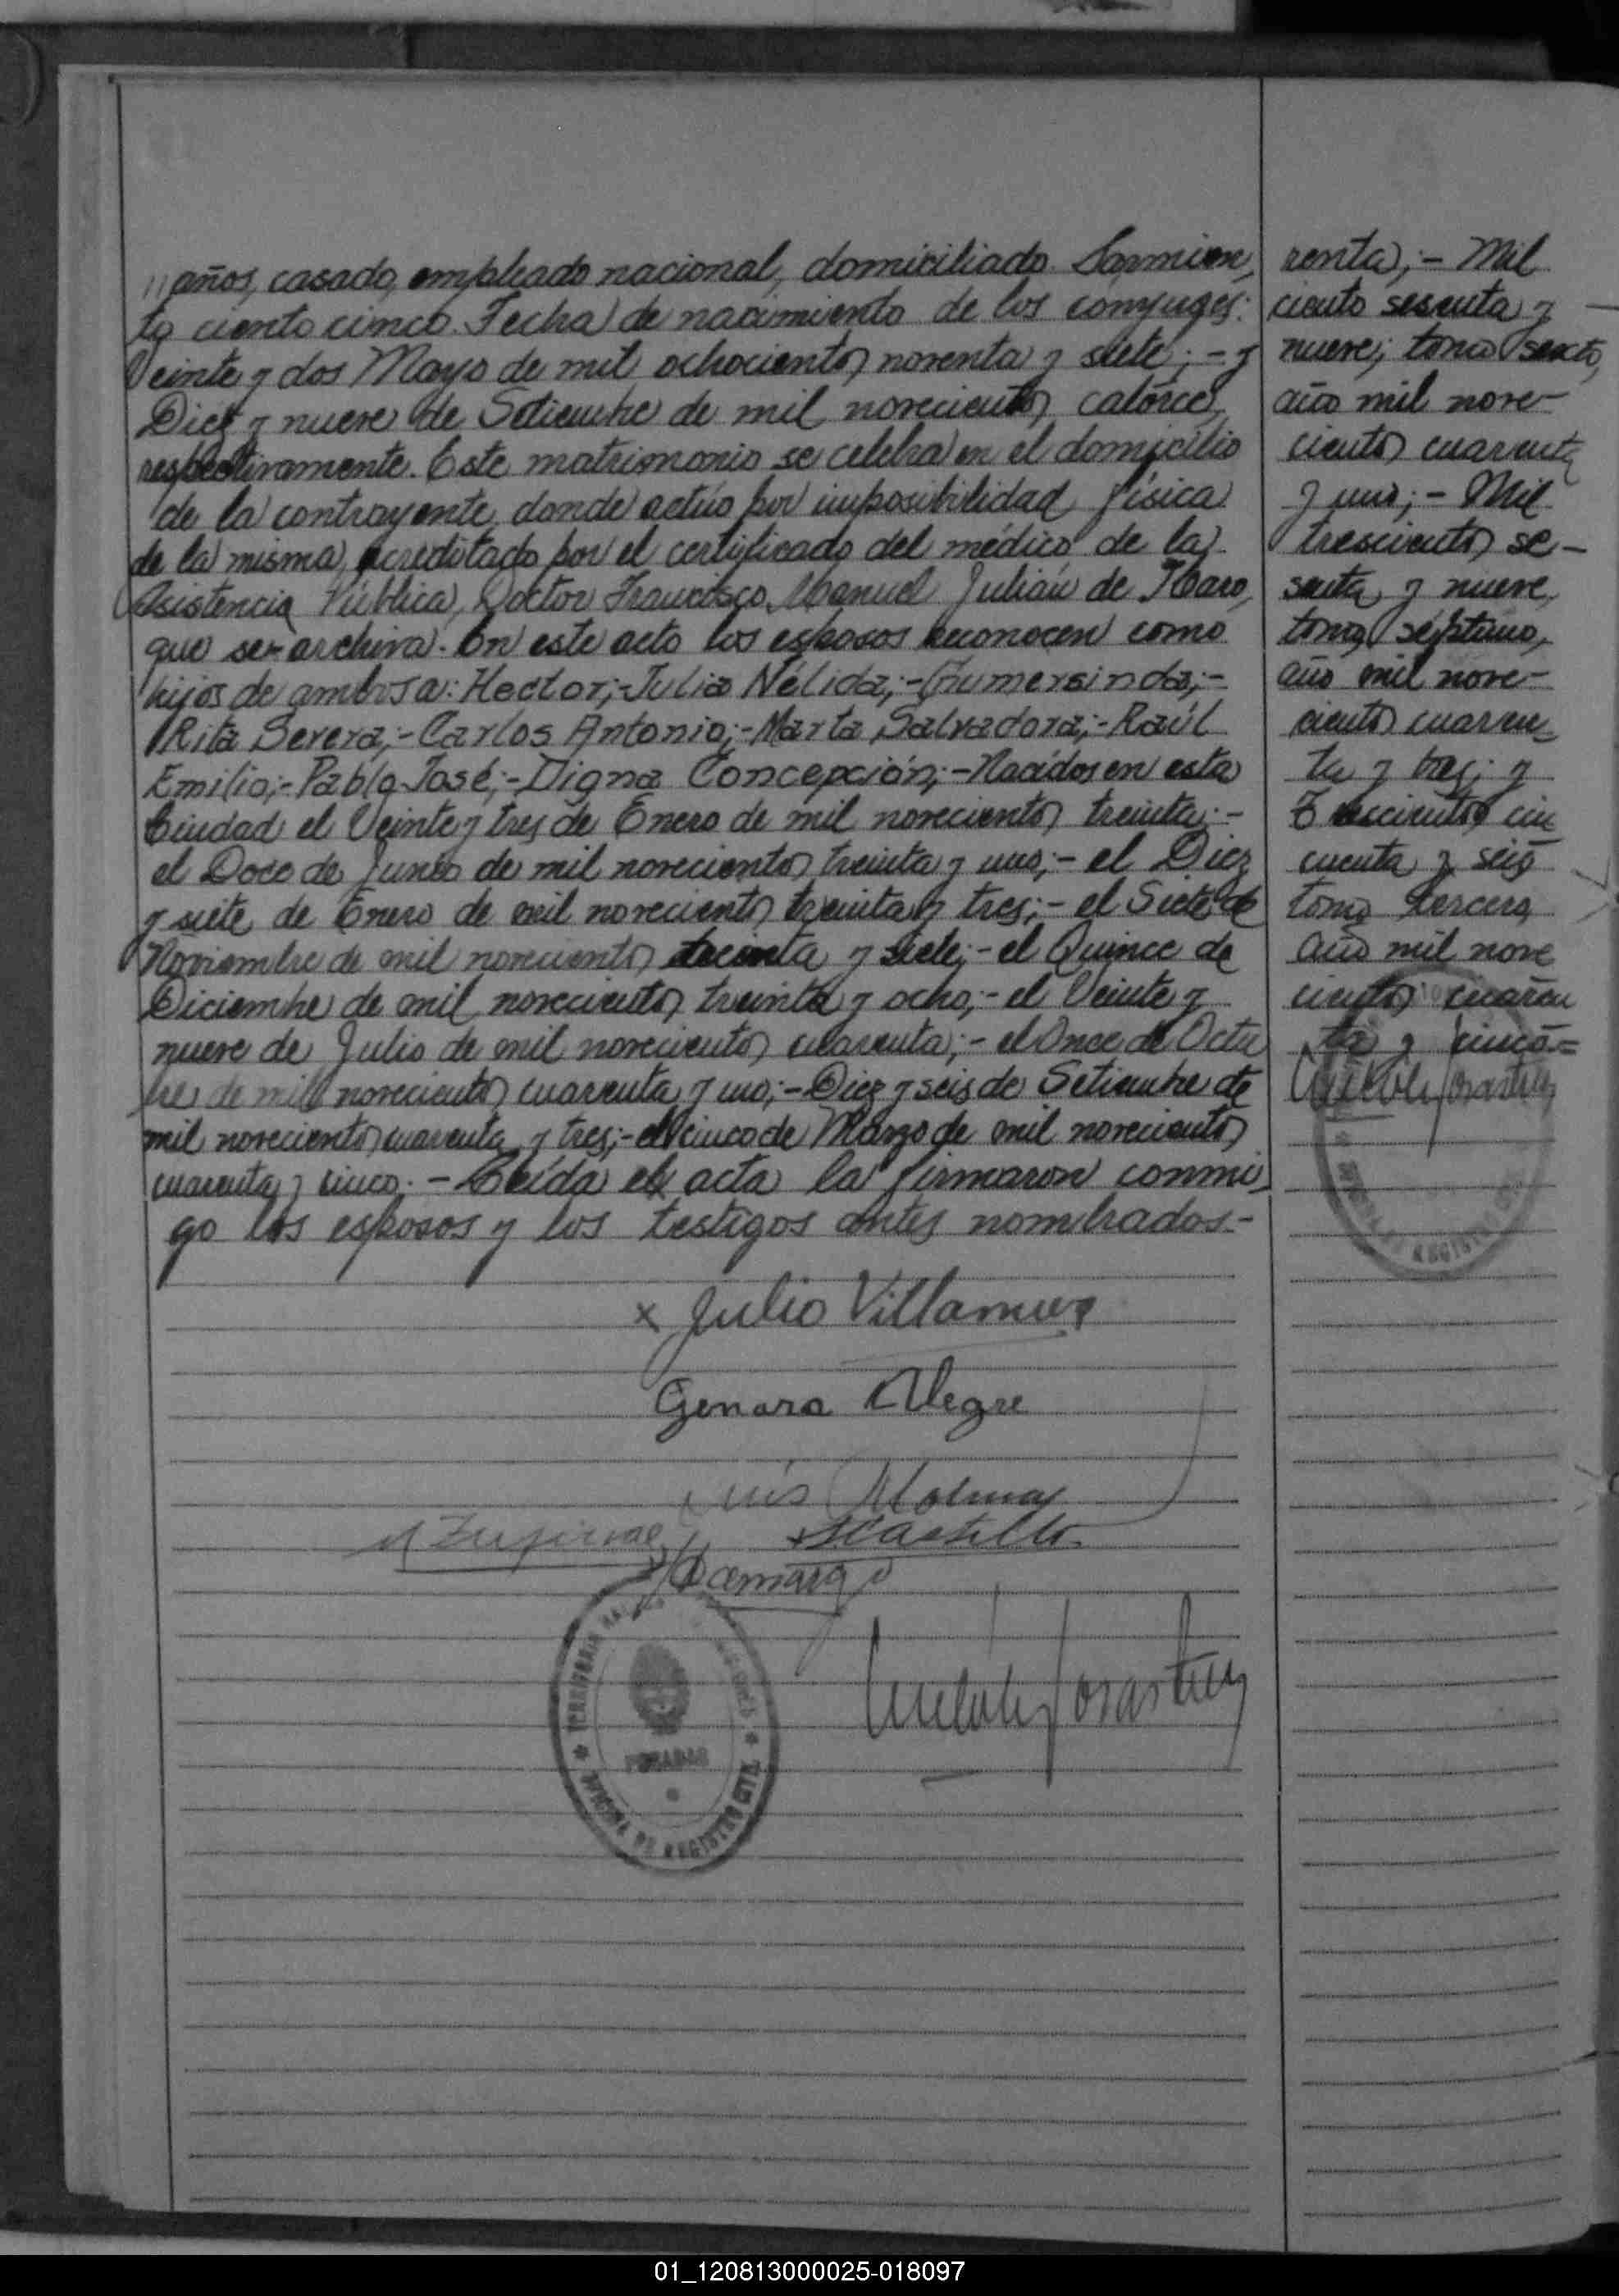 años, casado, empleado nacional, domiciliado Sarmien
to ciento cinco. Fecha de nacimiento de los cónyuges:
Veinte y dos Mayo de mil ochocientos noventa y siete; - y
Diez y nueve de Setiembre de mil novecientos catorce,
respectivamente. Este matrimonio se celebra en el domicilio
de la contrayente, donde actúo por imposibilidad física
de la misma, acreditado por el certificado del médico de la
Asistencia Pública, Doctor Francisco Manuel Julián de Haro,
que se archiva. En este acto los esposos reconocen como
hijos de ambos a: Hector;- Julia Nélida;- Gumersinda;-
Rita Severa;- Carlos Antonio;- Marta Salvadora;- Raúl
Emilio;- Pablo José;- Digna Concepción;- Nacidos en esta
Ciudad el Veinte y tres de Enero de mil novecientos treinta;-
el Doce de Junio de mil novecientos treinta y uno;- el Diez
y siete de Enero de mil novecientos treinta y tres;- el Siete de
Noviembre de mil novecientos treinta y siete;- el Quince de
Diciembre de mil novecientos treinta y ocho;- el Veinte y
nueve de Julio de mil novecientos cuarenta;- el Once de Octu
bre de mil novecientos cuarenta y uno;- Diez y seis de Setiembre de
mil novecientos cuarenta y tres;- el cinco de Marzo de mil novecientos
cuarenta y cinco.- Leída el acta la firmaron conmi
go los esposos y los testigos antes nombrados.-
x Julio Villamues
Genara Alegre
Luis Molinas
Castillo
Camargo
TERRITORIO
POSADAS
OFICINA DE REGISTRO CIVIL
renta);- Mil
ciento sesenta y
nueve; tomo sexto,
año mil nove-
cientos cuarenta
y uno;- Mil
trescientos se-
senta y nueve,
tomo séptimo,
año mil nove-
cientos cuaren
ta y tres; y
Trescientos cin
cuenta y seis
tomo tercero,
año mil nove
cientos cuaren
ta y cinco=
REGISTRO
01_120813000025-018097